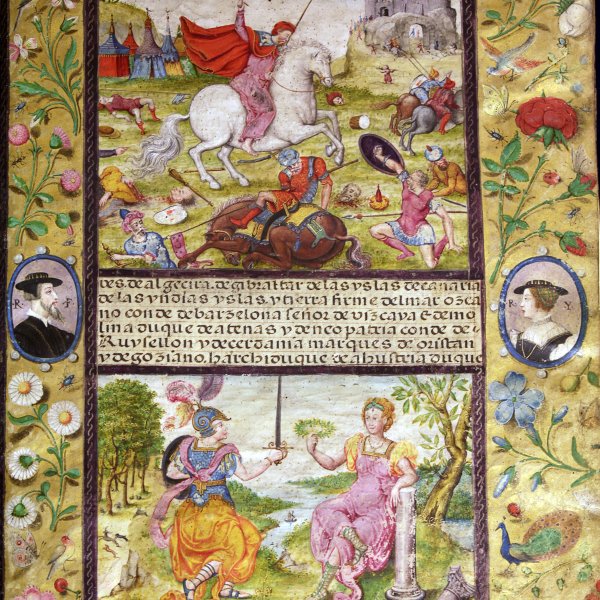 des de algecira, de gibraltar de las yslas de canaria
de las yndias yslas, y tierra firme del mar oҫea
no conde de barzelona señor de vizcaya & de mo
lina duque de atenas y de neo patria conde de
Ruysellon y de cerdania marques de oristan
y de goziano, harchiduque de abustria duque
R F
R Y